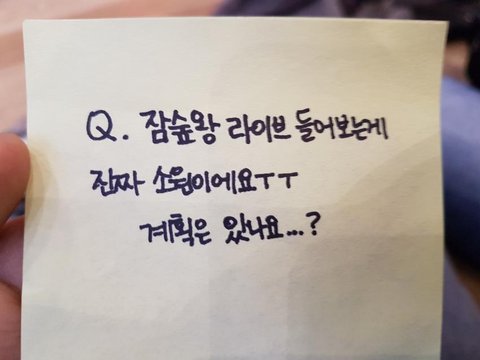 Q. 잠숲왕 라이브 들어보는게
진짜 소원이에요ㅜㅜ
계획은 있나요...?